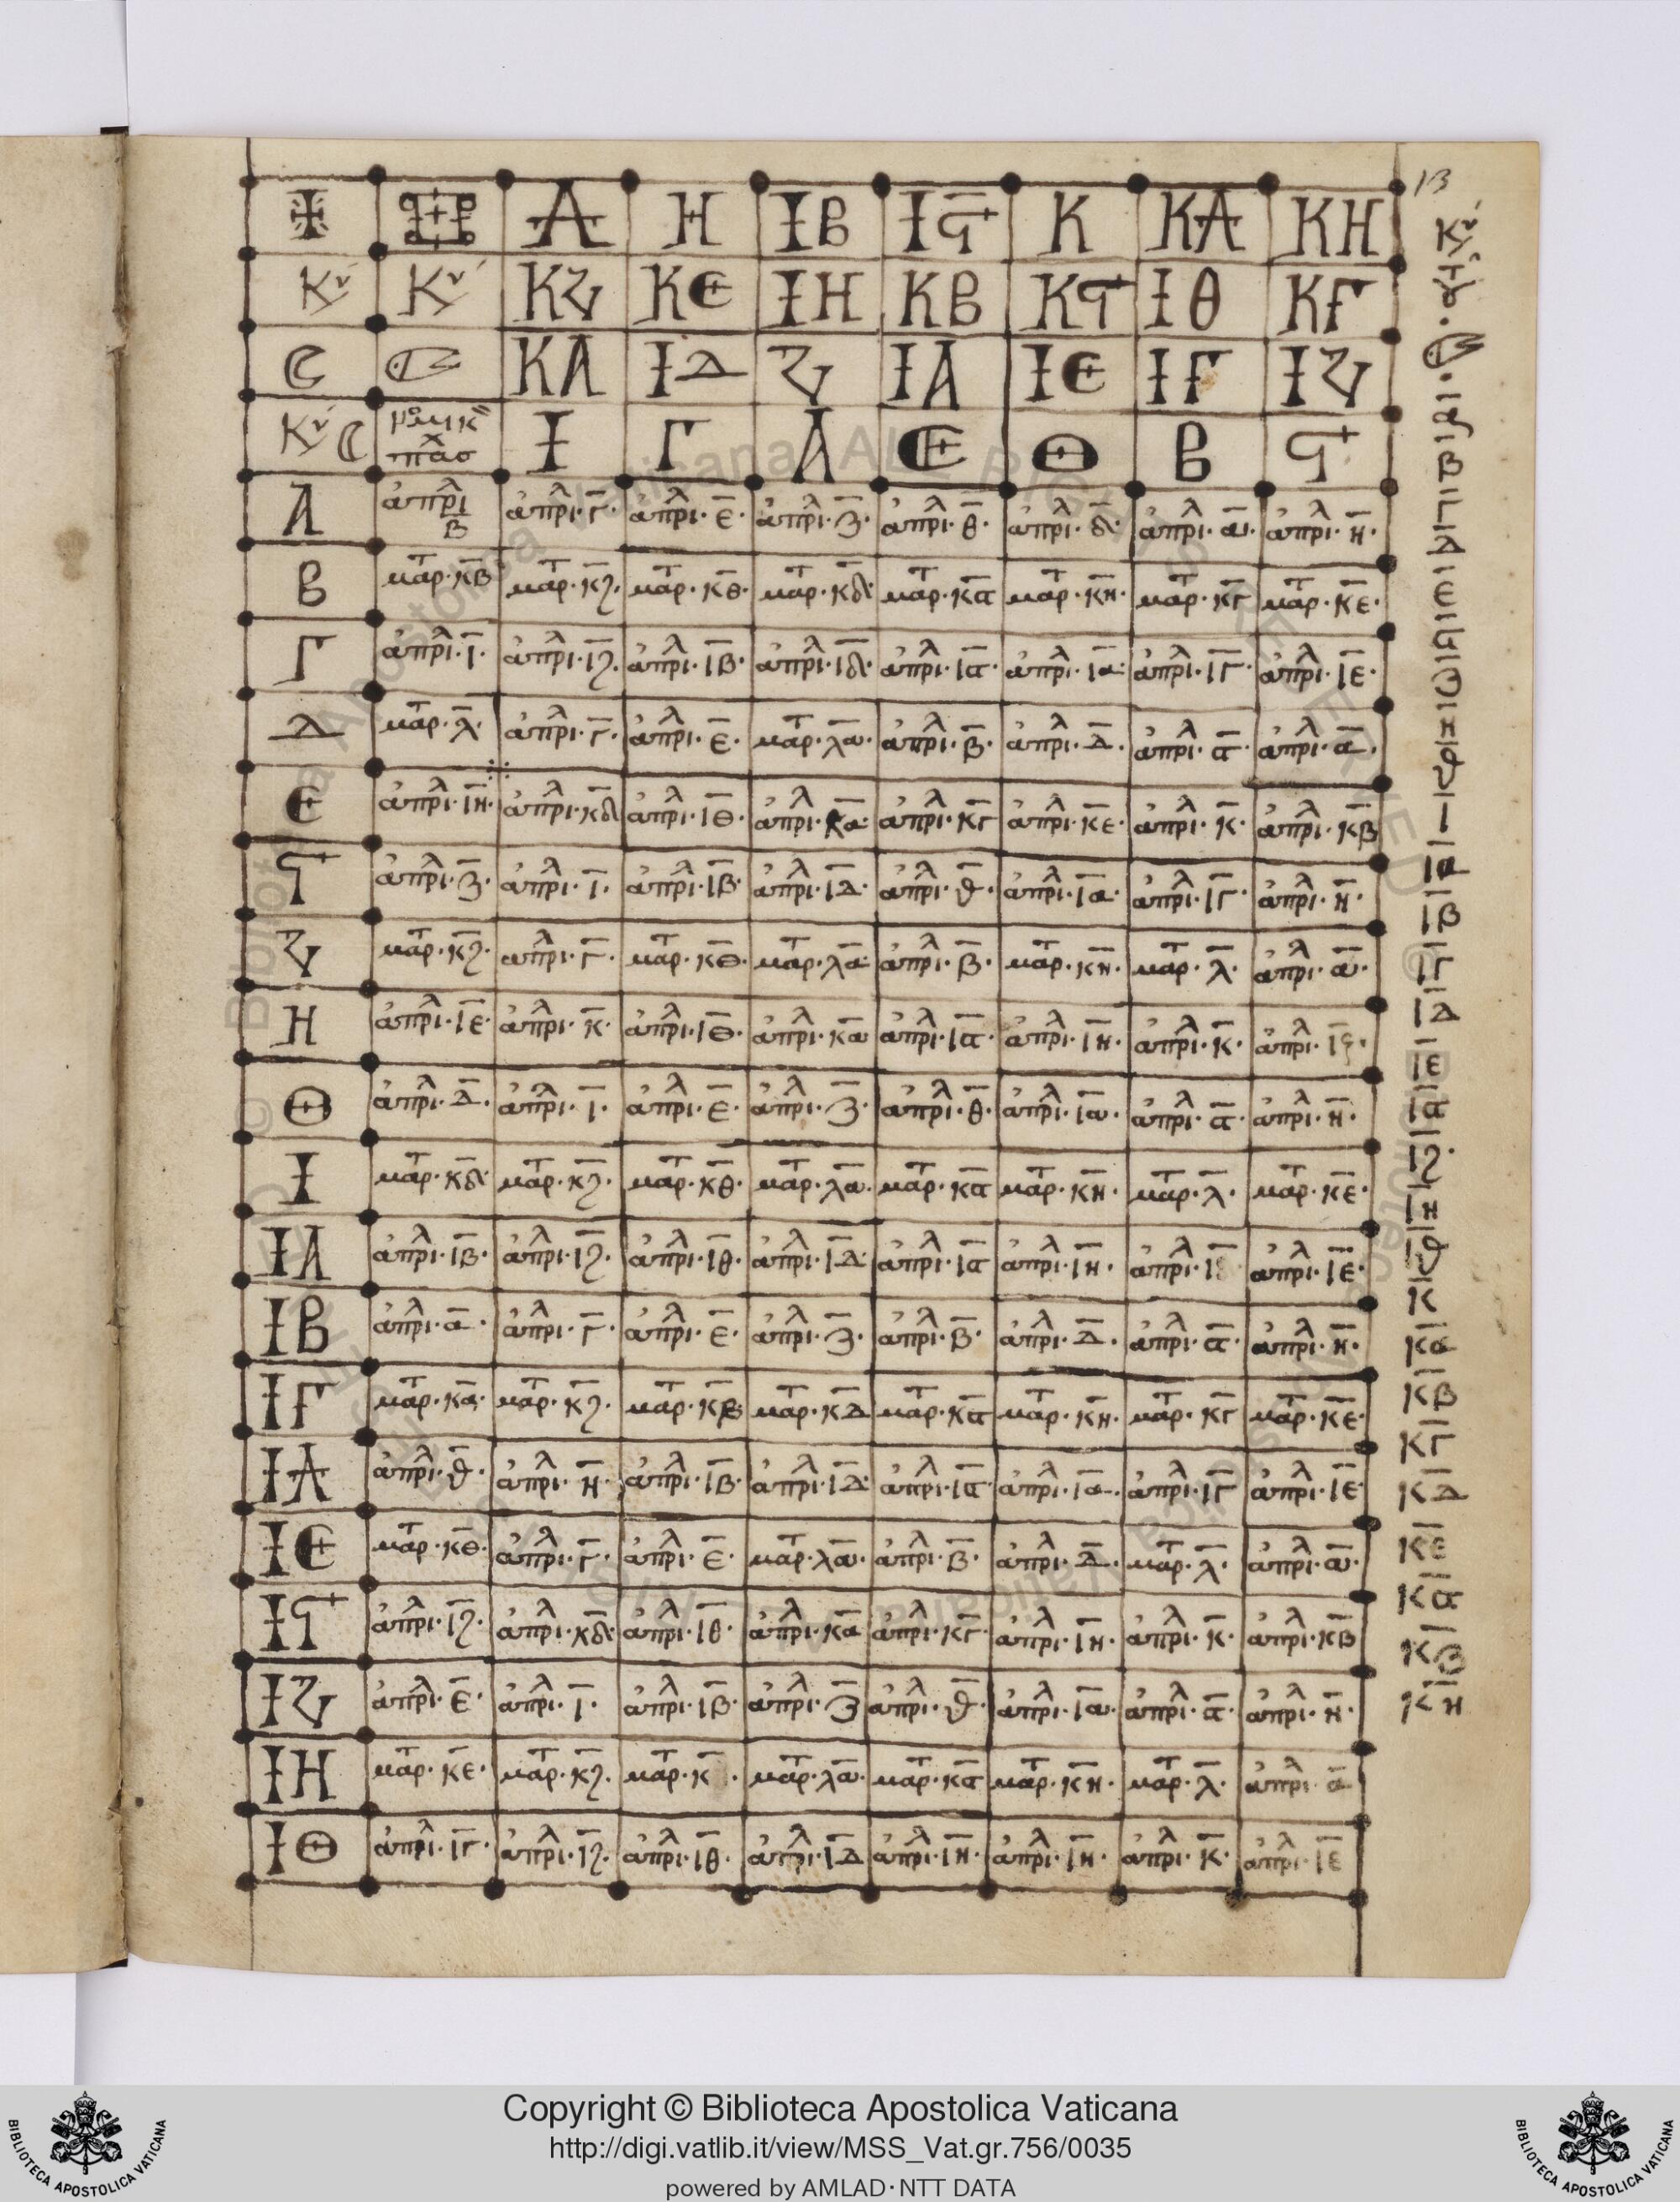 13
Δ Η ΙΒ Ιϛ Κ ΚΔ ΚΗ
Κυ Κυ ΚΖ ΚΕ ΙΗ ΚΒ Κϛ ΙΘ ΚΓ
ΚΑ ΙΔ Ζ ΙΑ ΙΕ ΙΓ ΙΖ
Κυ Ι Γ Α Ε Θ Β ϛ
Α ἀπρλι Β ἀπρλι·Γ· ἀπρλι·ε· ἀπρλι·ζ· ἀπρλι·θ· ἀπρλι·δ· ἀπρλι·α· ἀπρλι·η·
Β μαρτ·κβ μαρτ·κζ· μαρτ·κθ· μαρτ·κδ· μαρτ·κϛ μαρτ·κη· μαρτ·κγ μαρτ·κε·
Γ ἀπρλι·ι· ἀπρλι·ιζ· ἀπρλι·ιβ· ἀπρλι·ιδ· ἀπρλι·ιϛ· ἀπρλι·ια· ἀπρλι·ιγ· ἀπρλι·ιε·
Δ μαρτ·λ· ἀπρλι·γ· ἀπρλι·ε· μαρτ·λα· ἀπρλι·β· ἀπρλι·δ· ἀπρλι·ϛ· ἀπρλι·α·
Ε ἀπρλι·ιη· ἀπρλι·κδ ἀπρλι·ιθ· ἀπρλι·κα· ἀπρλι·κγ ἀπρλι·κε· ἀπρλι·κ· ἀπρλι·κβ
ϛ ἀπρλι·ζ· ἀπρλι·ι· ἀπρλι·ιβ· ἀπρλι·ιδ· ἀπρλι·θ· ἀπρλι·ια· ἀπρλι·ιγ· ἀπρλι·η·
Ζ μαρτ·κζ· ἀπρλι·γ· μαρτ·κθ· μαρτ·λα· ἀπρλι·β· μαρτ·κη· μαρτ·λ· ἀπρλι·α·
Η ἀπρλι·ιε· ἀπρλι·κ· ἀπρλι·ιθ· ἀπρλι·κα ἀπρλι·ιϛ· ἀπρλι·ιη· ἀπρλι·κ· ἀπρλι·
Θ ἀπρλι·δ· ἀπρλι·ι· ἀπρλι·ε· ἀπρλι·ζ· ἀπρλι·θ· ἀπρλι·ια· ἀπρλι·ϛ· ἀπρλι·η·
Ι μαρτ·κδ· μαρτ·κζ· μαρτ·κθ· μαρτ·λα· μαρτ·κϛ μαρτ·κη· μαρτ·λ· μαρτ·κε·
ΙΑ ἀπρλι·ιβ· ἀπρλι·ιζ· ἀπρλι·ιθ· ἀπρλι·ιδ· ἀπρλι·ιϛ ἀπρλι·ιη· ἀπρλι· ἀπρλι·ιε·
ΙΒ ἀπρλι·α· ἀπρλι·γ· ἀπρλι·ε· ἀπρλι·ζ· ἀπρλι·β· ἀπρλι·δ· ἀπρλι·ϛ· ἀπρλι·η·
ΙΓ μαρτ·κα· μαρτ·κζ· μαρτ·κβ μαρτ·κδ μαρτ·κϛ μαρτ·κη· μαρτ·κγ μαρτ·κε·
ΙΔ ἀπρλι·θ· ἀπρλι·η· ἀπρλι·ιβ· ἀπρλι·ιδ· ἀπρλι·ιϛ ἀπρλι·ια· ἀπρλι·ιγ ἀπρλι·ιε
ΙΕ μαρτ·κθ· ἀπρλι·γ· ἀπρλι·ε· μαρτ·λα· ἀπρλι·β· ἀπρλι·δ· μαρτ·λ· ἀπρλι·α·
Ιϛ ἀπρλι·ιζ· ἀπρλι·κδ· ἀπρλι·ιθ· ἀπρλι·κα ἀπρλι·κγ· ἀπρλι·ιη· ἀπρλι·κ· ἀπρλι·κβ
ΙΖ ἀπρλι·ε· ἀπρλι·ι· ἀπρλι·ιβ· ἀπρλι·ζ ἀπρλι·θ· ἀπρλι·ια· ἀπρλι·ϛ· ἀπρλι·η·
ΙΗ μαρτ·κε· μαρτ·κζ· μαρτ·κ · μαρτ·λα· μαρτ·κϛ μαρτ·κη· μαρτ·λ· ἀπρλι·α
ΙΘ ἀπρλι·ιγ· ἀπρλι·ιζ· ἀπρλι·ιθ· ἀπρλι·ιδ ἀπρλι·ιη· ἀπρλι·ιη· ἀπρλι·κ· ἀπρλι·ιε
Κυ
ιβ
ιγ
ιδ
ιε
ιϛ
ιζ
ιη
ιθ
κ
κα
κβ
κγ
κδ
κε
κϛ
κζ
κη
Copyright © Biblioteca Apostolica Vaticana
http://digi.vatlib.it/view/MSS_Vat.gr.756/0035
powered by AMLAD·NTT DATA
BIBLIOTECA APOSTOLICA VATICANA
BIBLIOTECA APOSTOLICA VATICANA